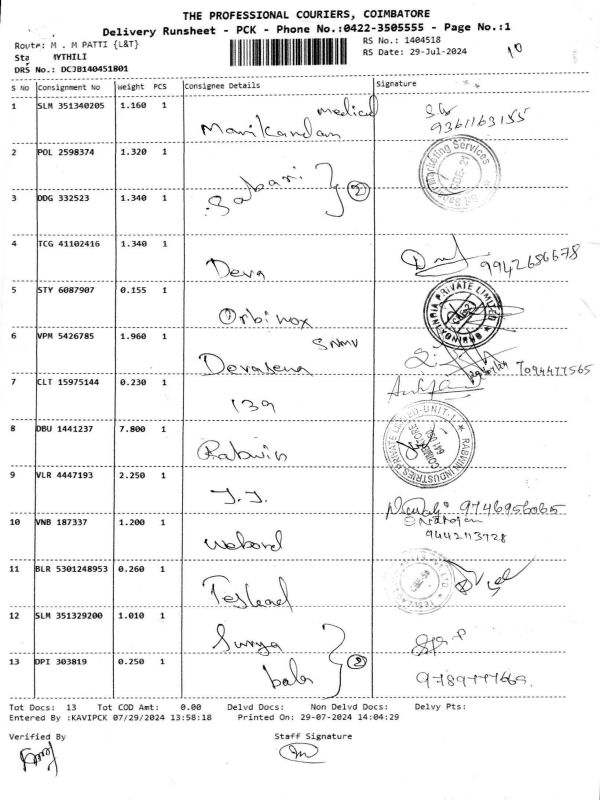 THE PROFESSIONAL COURIERS, COIMBATORE
Delivery Runsheet - PCK - Phone No.:0422-3505555 - Page No.:1
Route: M . M PATTI {L&T}
RS No.: 1404518
RS Date: 29-Jul-2024
10
MYTHILI
DRS No.: DCJB140451801
S No Consignment No Weight PCS Consignee Details Signature
1 SLM 351340205 1.160 1 Manikandan medical
9361163155
2 POL 2598374 1.320 1
Sabari 2
Marketing Services
3 DDG 332523 1.340 1
4 TCG 41102416 1.340 1 Deva
9942686678
5 STY 6087907 0.155 1 Orbinox
ORBINOX INDIA PRIVATE LIMITED
6 VPM 5426785 1.960 1 Devasena SNMV
7094477565
7 CLT 15975144 0.230 1 139
8 DBU 1441237 7.800 1 Rabwin
RABWIN INDUSTRIES PRIVATE LIMITED-UNIT-I
COIMBATORE
9 VLR 4447193 2.250 1 J.J.
9746956065
10 VNB 187337 1.200 1
Natrajan
9442113728
11 BLR 5301248953 0.260 1 Teslead
12 SLM 351329200 1.010 1 Surya
2
13 DPI 303819 0.250 1 bala
9789777669
Tot Docs: 13 Tot COD Amt: 0.00 Delvd Docs: Non Delvd Docs: Delvy Pts:
Entered By :KAVIPCK 07/29/2024 13:58:18 Printed On: 29-07-2024 14:04:29
Verified By Staff Signature